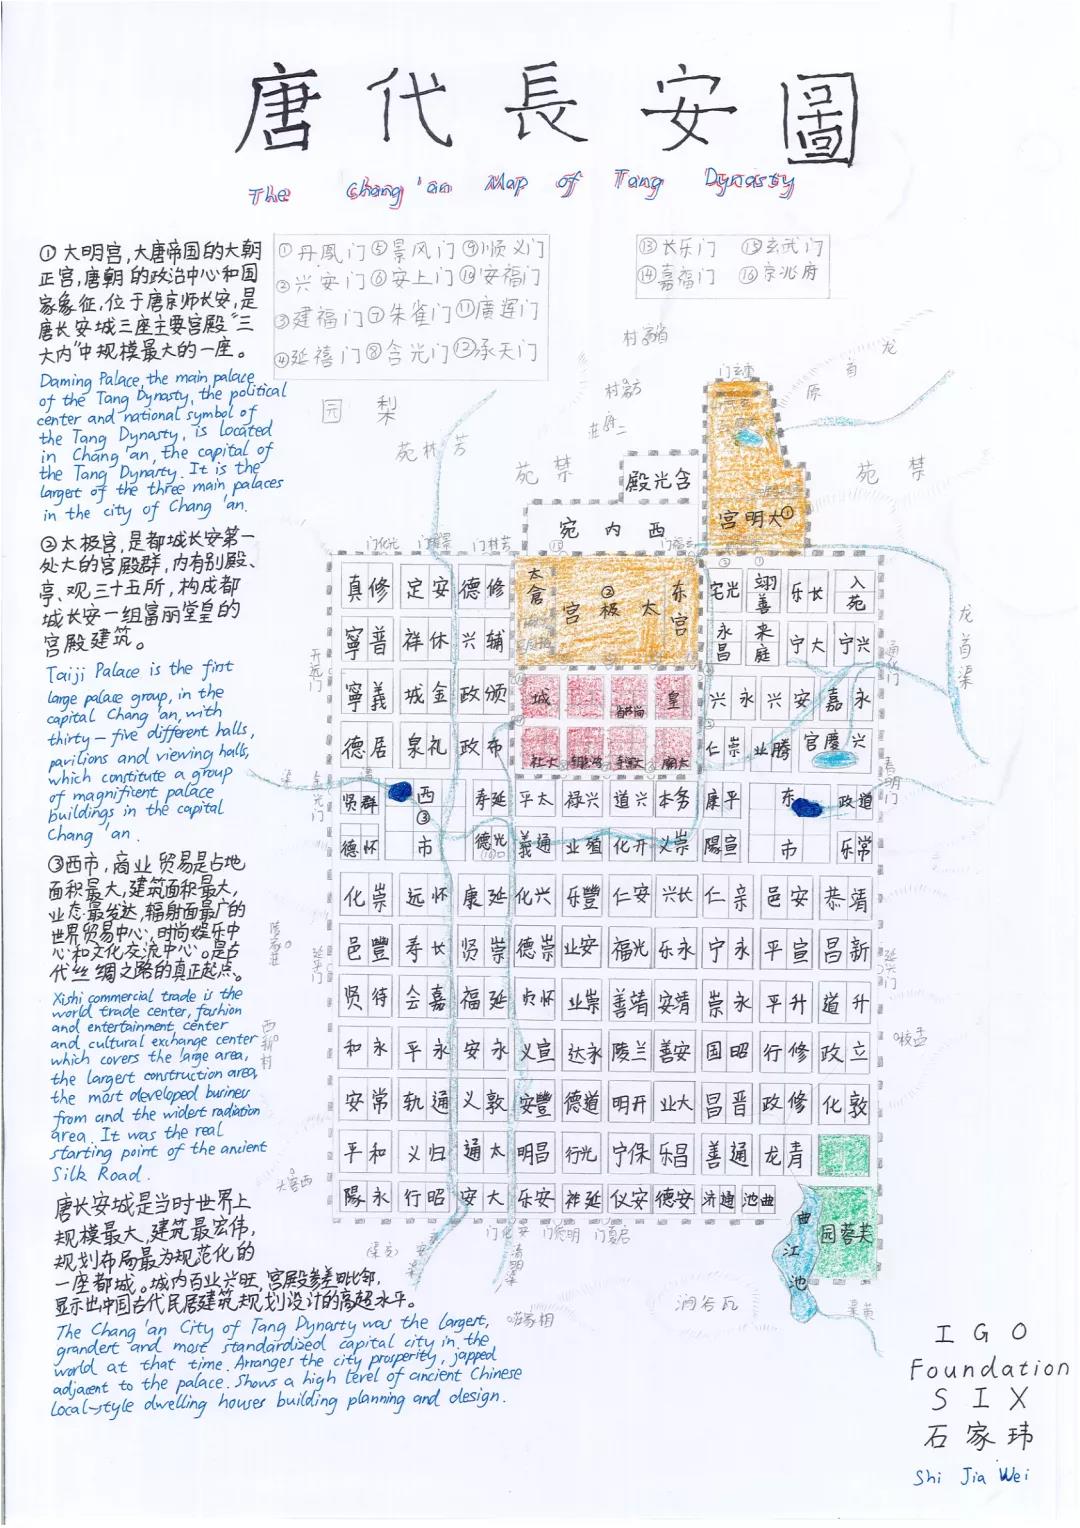 唐代長安圖
The Chang'an Map of Tang Dynasty
①大明宫,大唐帝国的大朝
正宫,唐朝的政治中心和国
家象征,位于唐京师长安,是
唐长安城三座主要宫殿“三
大内”中规模最大的一座。
Daming Palace, the main palace
of the Tang Dynasty, the political
center and national symbol of
the Tang Dynasty, is located
in Chang'an, the capital of
the Tang Dynasty. It is the
largest of the three main palaces
in the city of Chang'an.
②太极宫,是都城长安第一
处大的宫殿群,内有别殿、
亭、观三十五所,构成都
城长安一组富丽堂皇的
宫殿建筑。
Taiji Palace is the first
large palace group, in the
capital Chang'an, with
thirty-five different halls,
pavilions and viewing halls,
which constitute a group
of magnificent palace
buildings in the capital
Chang'an.
③西市,商业贸易是占地
面积最大,建筑面积最大,
业态最发达,辐射面最广的
世界贸易中心,时尚娱乐中
心和文化交流中心。是古
代丝绸之路的真正起点。
Xishi commercial trade is the
world trade center, fashion
and entertainment center
and cultural exchange center
which covers the large area,
the largest construction area,
the most developed business
from and the widest radiation
area. It was the real
starting point of the ancient
Silk Road.
唐长安城是当时世界上
规模最大,建筑最宏伟,
规划布局最为规范化的
一座都城。城内百业兴旺,宫殿参差毗邻,
显示出中国古代民居建筑规划设计的高超水平。
The Chang'an City of Tang Dynasty was the largest,
grandest and most standardized capital city in the
world at that time. Arranges the city prosperity, japped
adjacent to the palace. Shows a high level of ancient Chinese
local-style dwelling houses building planning and design.
①丹鳳门 ⑤景风门 ⑨顺义门
②兴安门 ⑥安上门 ⑩安福门
③建福门 ⑦朱雀门 ⑪廣运门
④延禧门 ⑧含光门 ⑫承天门
⑬长乐门 ⑮玄武门
⑭嘉福门 ⑯京兆府
园 梨
苑 林 芳
苑 禁
苑 禁
龙
首
原
殿光含
宛 内 西
宫明大①
太倉
②
宫 极 太
东宫
真修 定安 德修 宅光 翊善 乐长 入苑
寧普 祥休 兴辅 永昌 来庭 宁大 宁兴
寧義 城金 政颁 城 皇 兴永 兴安 嘉永
德居 泉礼 政布 仁崇 业腾 官慶兴
贤群 西 寿延 平太 禄兴 道兴 本务 康平 东 政道
③
德怀 市 德光 義通 业殖 化开 义崇 陽宣 市 乐常
化崇 远怀 康延 化兴 乐豐 仁安 兴长 仁亲 邑安 恭靖
邑豐 寿长 贤崇 德崇 业安 福光 乐永 宁永 平宣 昌新
贤待 会嘉 福延 贞怀 业崇 善靖 安靖 崇永 平升 道升
和永 平永 安永 义宣 达永 陵兰 善安 国昭 行修 政立
安常 轨通 义敦 安豐 德道 明开 业大 昌晋 政修 化敦
平和 义归 通太 明昌 行光 宁保 乐昌 善通 龙青
陽永 行昭 安大 乐安 祥延 仪安 德安 济通 池曲
园蓉芙
曲
江
池
开远门
龙首渠
春明门
延平门
延兴门
IGO
Foundation
SIX
石家玮
Shi Jia Wei